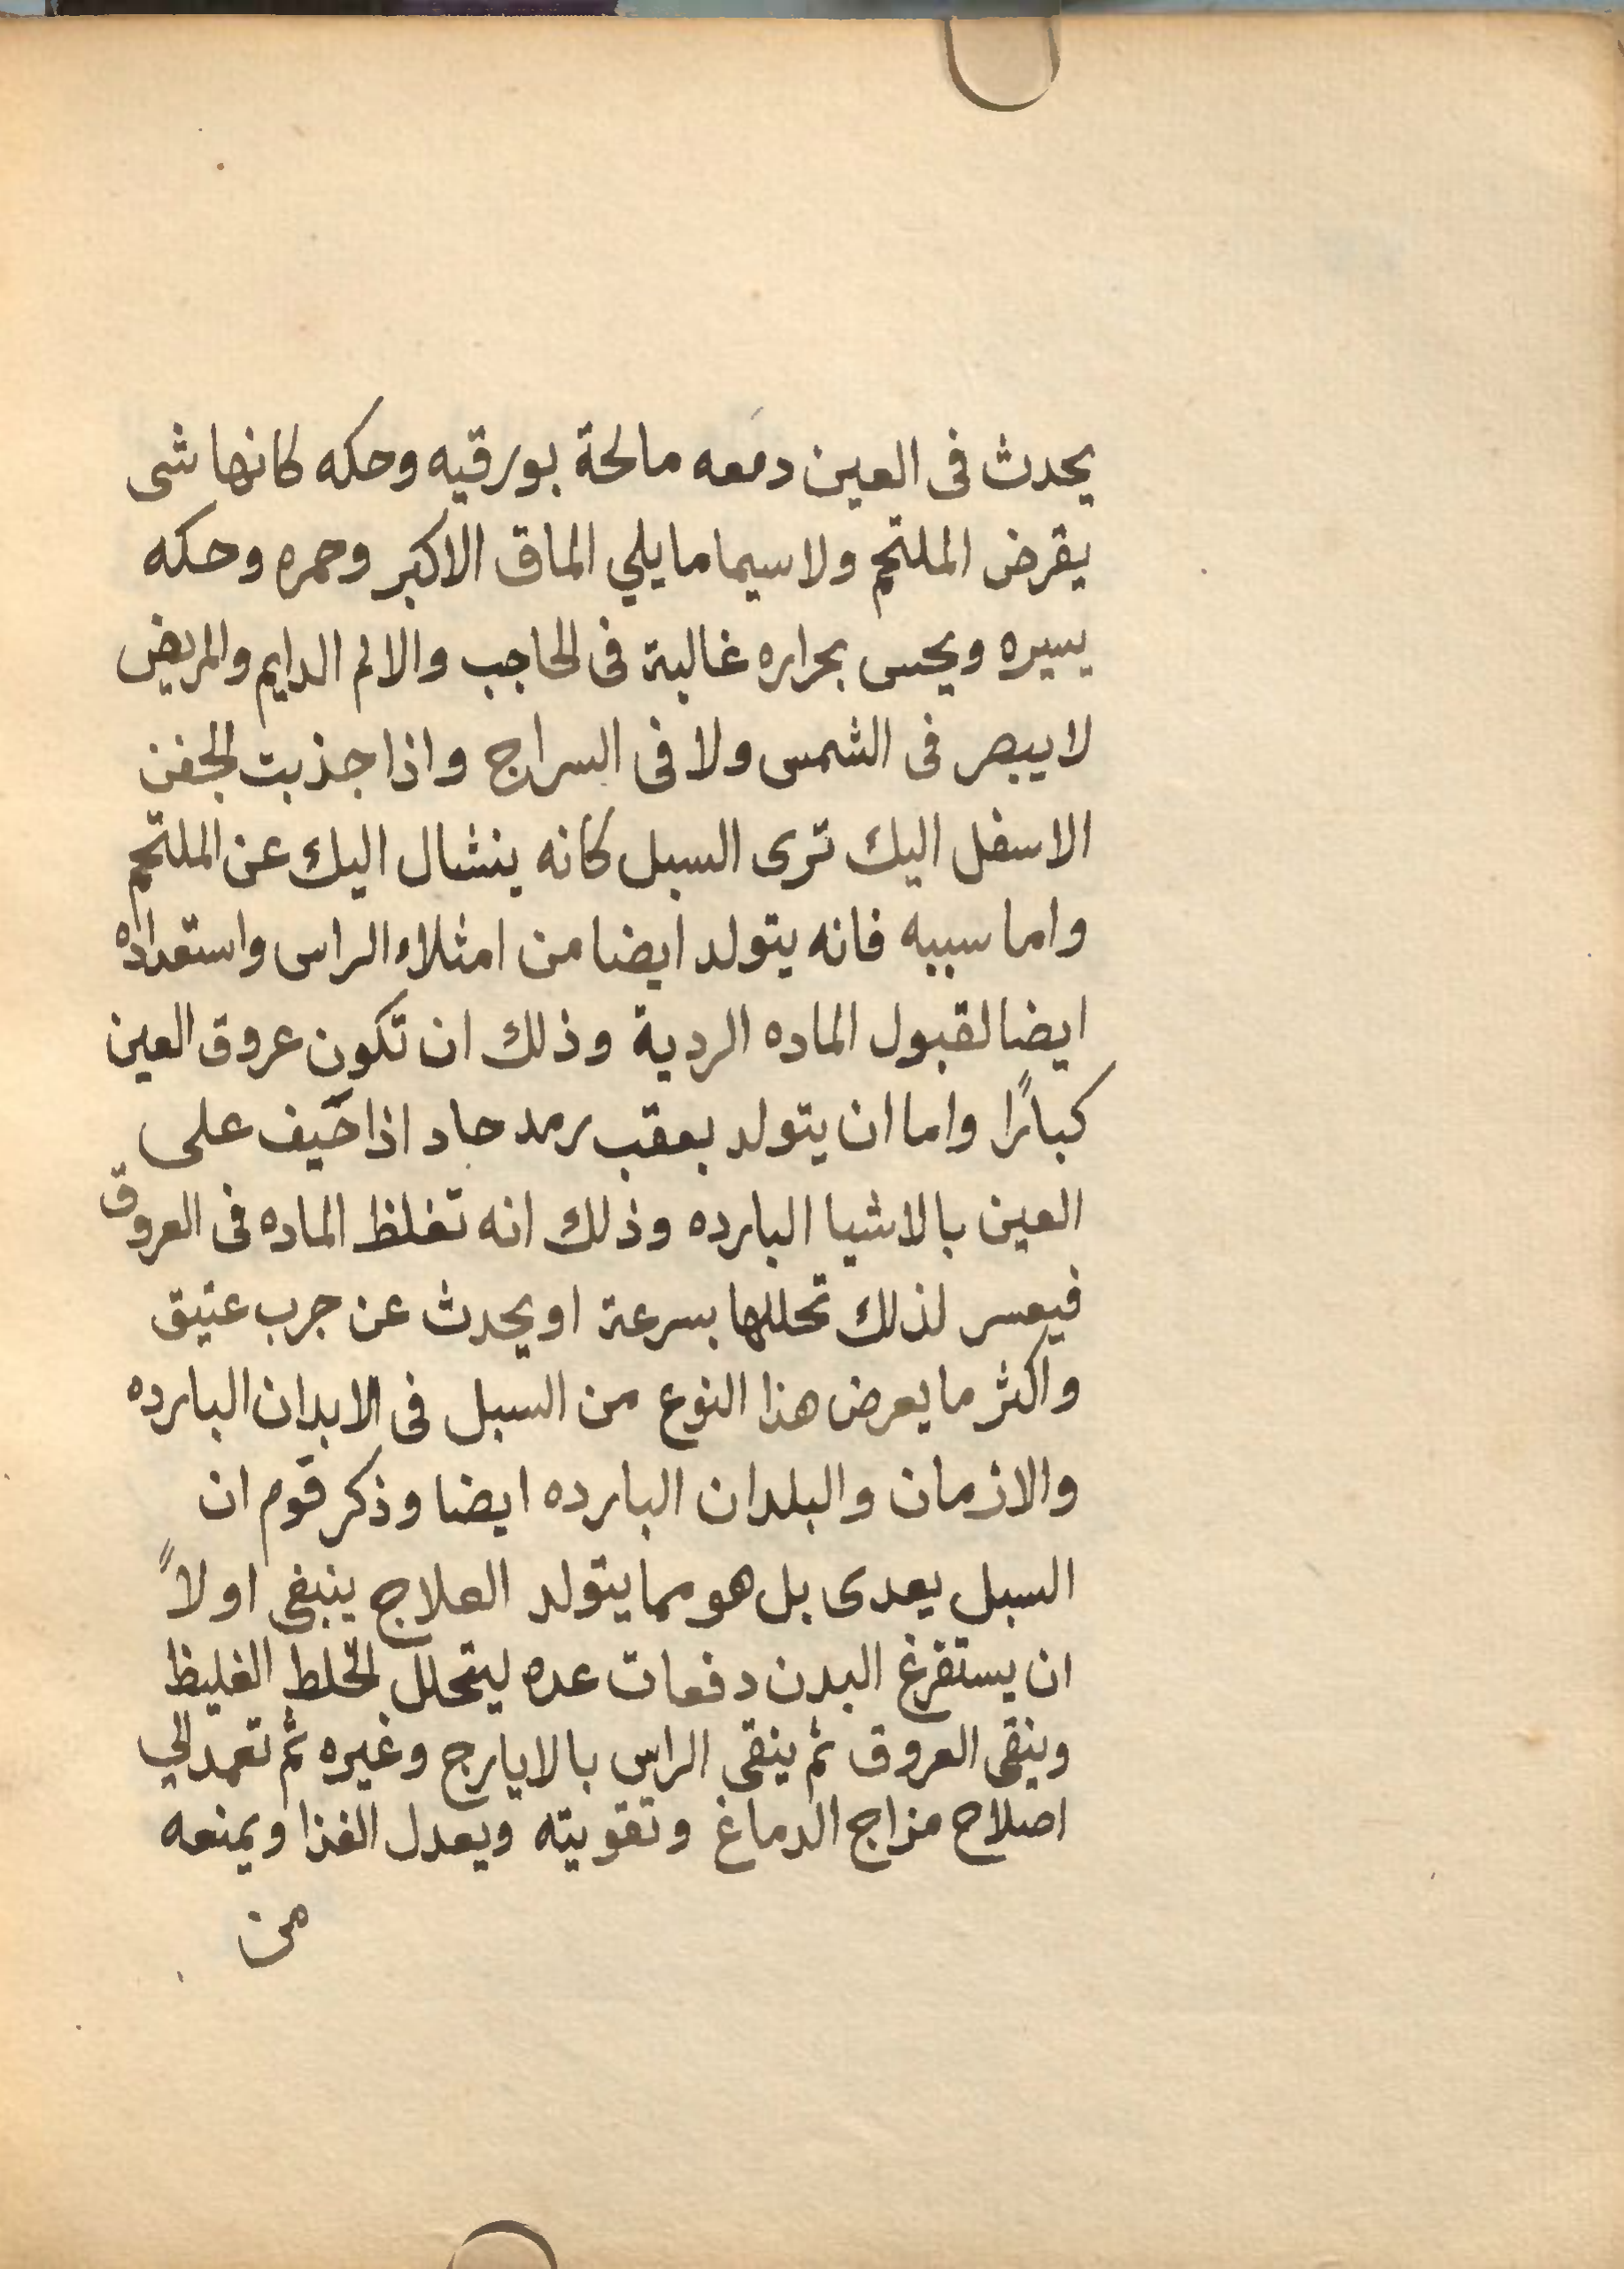 يحدث فى العين دمعه مالحة بورقيه وحكه كانها شى
يقرض الملتحم ولاسيما مايلي الماق الاكبر وحمره وحكه
يسيره ويحس بحراره غالبة فى الحاجب والالم الدايم والمريض
لايبصر فى الشمس ولا فى السراج واذا جذبت الجفن
الاسفل اليك ترى السبل كانه ينشال اليك عن الملتحم
واما سببه فانه يتولد ايضا من امثلاء الراس واستعداده
ايضا لقبول الماده الردية وذلك ان تكون عروق العين
كبارًا واما ان يتولد بعقب رمد حاد اذا حَيف على
العين بالاشيا البارده وذلك انه تغلظ الماده فى العروق
فيعسر لذلك تحللها بسرعة او يحدث عن جرب عتيق
واكثر ما يعرض هذا النوع من السبل فى الابدان البارده
والازمان والبلدان البارده ايضا وذكر قوم ان
السبل يعدى بل هو مما يتولد العلاج ينبغى اولاً
ان يستفرغ البدن دفعات عده ليتحلل الخلط الغليظ
وينقى العروق ثم ينقى الراس بالايارج وغيره ثم تعمد الي
اصلاح مزاج الدماغ وتقويته ويعدل الغذا ويمنعه
من